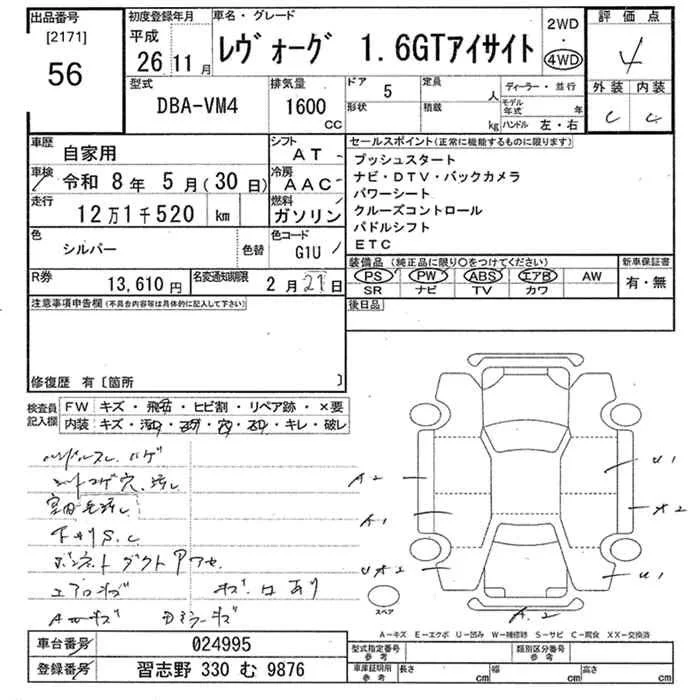 出品番号
[2171]
56
初度登録年月
平成
26 11 月
車名・グレード
レヴォーグ 1.6GTアイサイト
2WD
・
4WD
評価点
4
外装 内装
C C
型式
DBA-VM4
排気量
1600
CC
ドア 5
形状
定員 人
積載 kg
ディーラー・並行
モデル年式 年
ハンドル 左・右
車歴
自家用
シフト
AT
車検
令和 8年 5月(30日)
冷房
AAC
走行
12万1千520 km
燃料
ガソリン
色
シルバー
色替
色コード
G1U
R券
13,610円
名変通知期限
2月27日
セールスポイント(正常に機能するものに限ります)
プッシュスタート
ナビ・DTV・バックカメラ
パワーシート
クルーズコントロール
パドルシフト
ETC
装備品(純正品に限り○をつけてください)
PS PW ABS エアB AW
SR ナビ TV カワ
新車保証書
有・無
後日品
注意事項申告欄(不具合内容等は具体的に記入して下さい)
修復歴 有〔箇所 〕
検査員記入欄
FW キズ・飛石・ヒビ割・リペア跡・×要
内装 キズ・汚レ・コゲ・穴・スレ・キレ・破レ
ハンドルスレ、ハゲ
シートコゲ穴、汚レ
下廻りS、C
ボンネットダクトアセ
エアロキズ
キズ凹あり
AWキズ
Dミラーキズ
A2
A1
UA2
U1
A2
U1
A2
スペア
A−キズ E−エクボ U−凹み W−補修跡 S−サビ C−腐食 XX−交換済
車台番号 024995
登録番号 習志野 330 む 9876
型式指定番号
参考
類別区分番号
参考
車庫証明用
参考
長さ cm
幅 cm
高さ cm